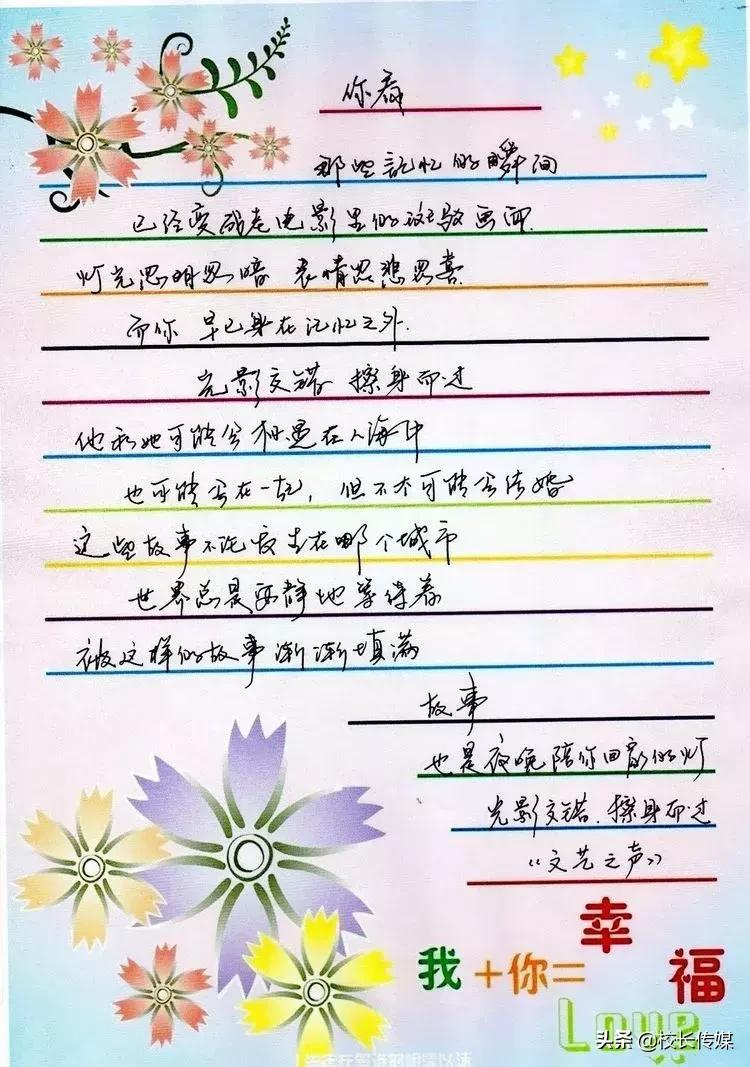 你看
那些记忆的瞬间
已经变成老电影里的斑驳画面
灯光忽明忽暗 表情忽悲忽喜
而你 早已身在记忆之外.
光影交错 擦身而过
他和她可能会相遇在人海中
也可能会在一起，但不太可能会结婚
这些故事不论发生在哪个城市
世界总是安静地等待着
被这样的故事渐渐填满
故事
也是夜晚陪你回家的灯
光影交错.擦身而过
《文艺之声》
我+你=
幸
福
Love
头条 @校长传媒